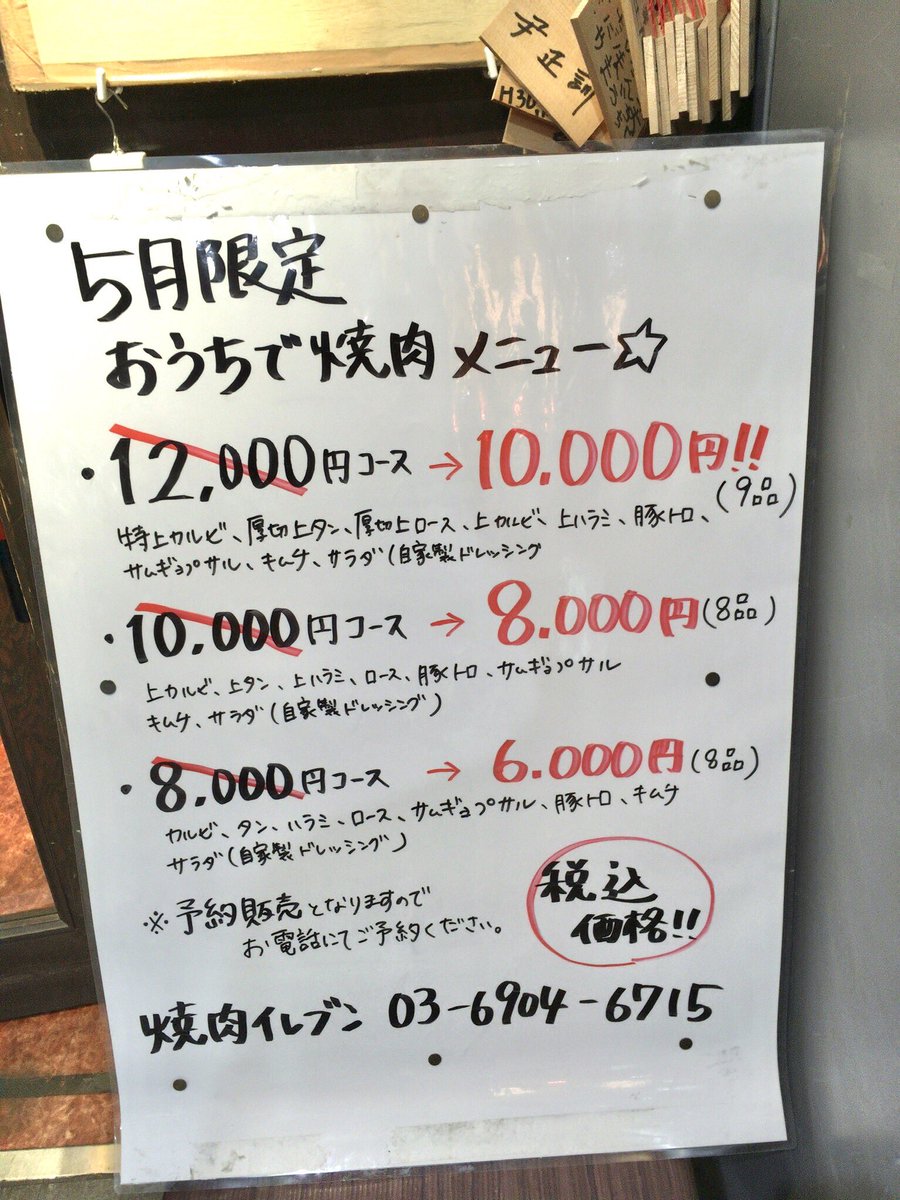 尹正訓
H30.
5月限定
おうちで焼肉メニュー☆
・12,000円コース→10.000円!!
(9品)
特上カルビ、厚切上タン、厚切上ロース、上カルビ、上ハラミ、豚トロ、
サムギョプサル、キムチ、サラダ(自家製ドレッシング
・10,000円コース→8.000円(8品)
上カルビ、上タン、上ハラミ、ロース、豚トロ、サムギョプサル
キムチ、サラダ(自家製ドレッシング)
・8,000円コース→6.000円(8品)
カルビ、タン、ハラミ、ロース、サムギョプサル、豚トロ、キムチ
サラダ(自家製ドレッシング)
※予約販売となりますので
お電話にてご予約ください。
税込
価格!!
焼肉イレブン 03-6904-6715